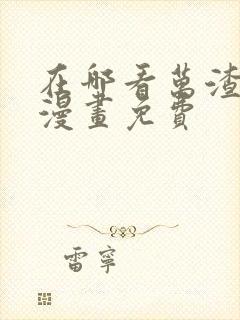 在那看萬渣
漫畫免費
雷寧